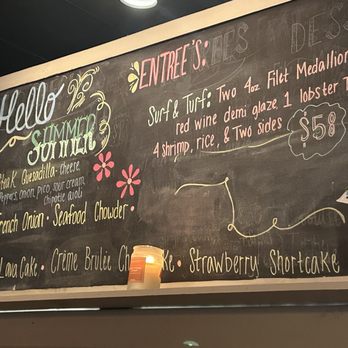 Hello
SUMMER
Steak Quesadilla - cheese,
peppers, onion, pico, sour cream,
chipotle aioli
French Onion • Seafood Chowder •
Lava Cake • Crème Brulée Ch se • Strawberry Shortcake
ENTREE'S:
Surf & Turf: Two 4oz Filet Medallion
red wine demi glaze, 1 lobster T
4 shrimp, rice, & Two sides
$58